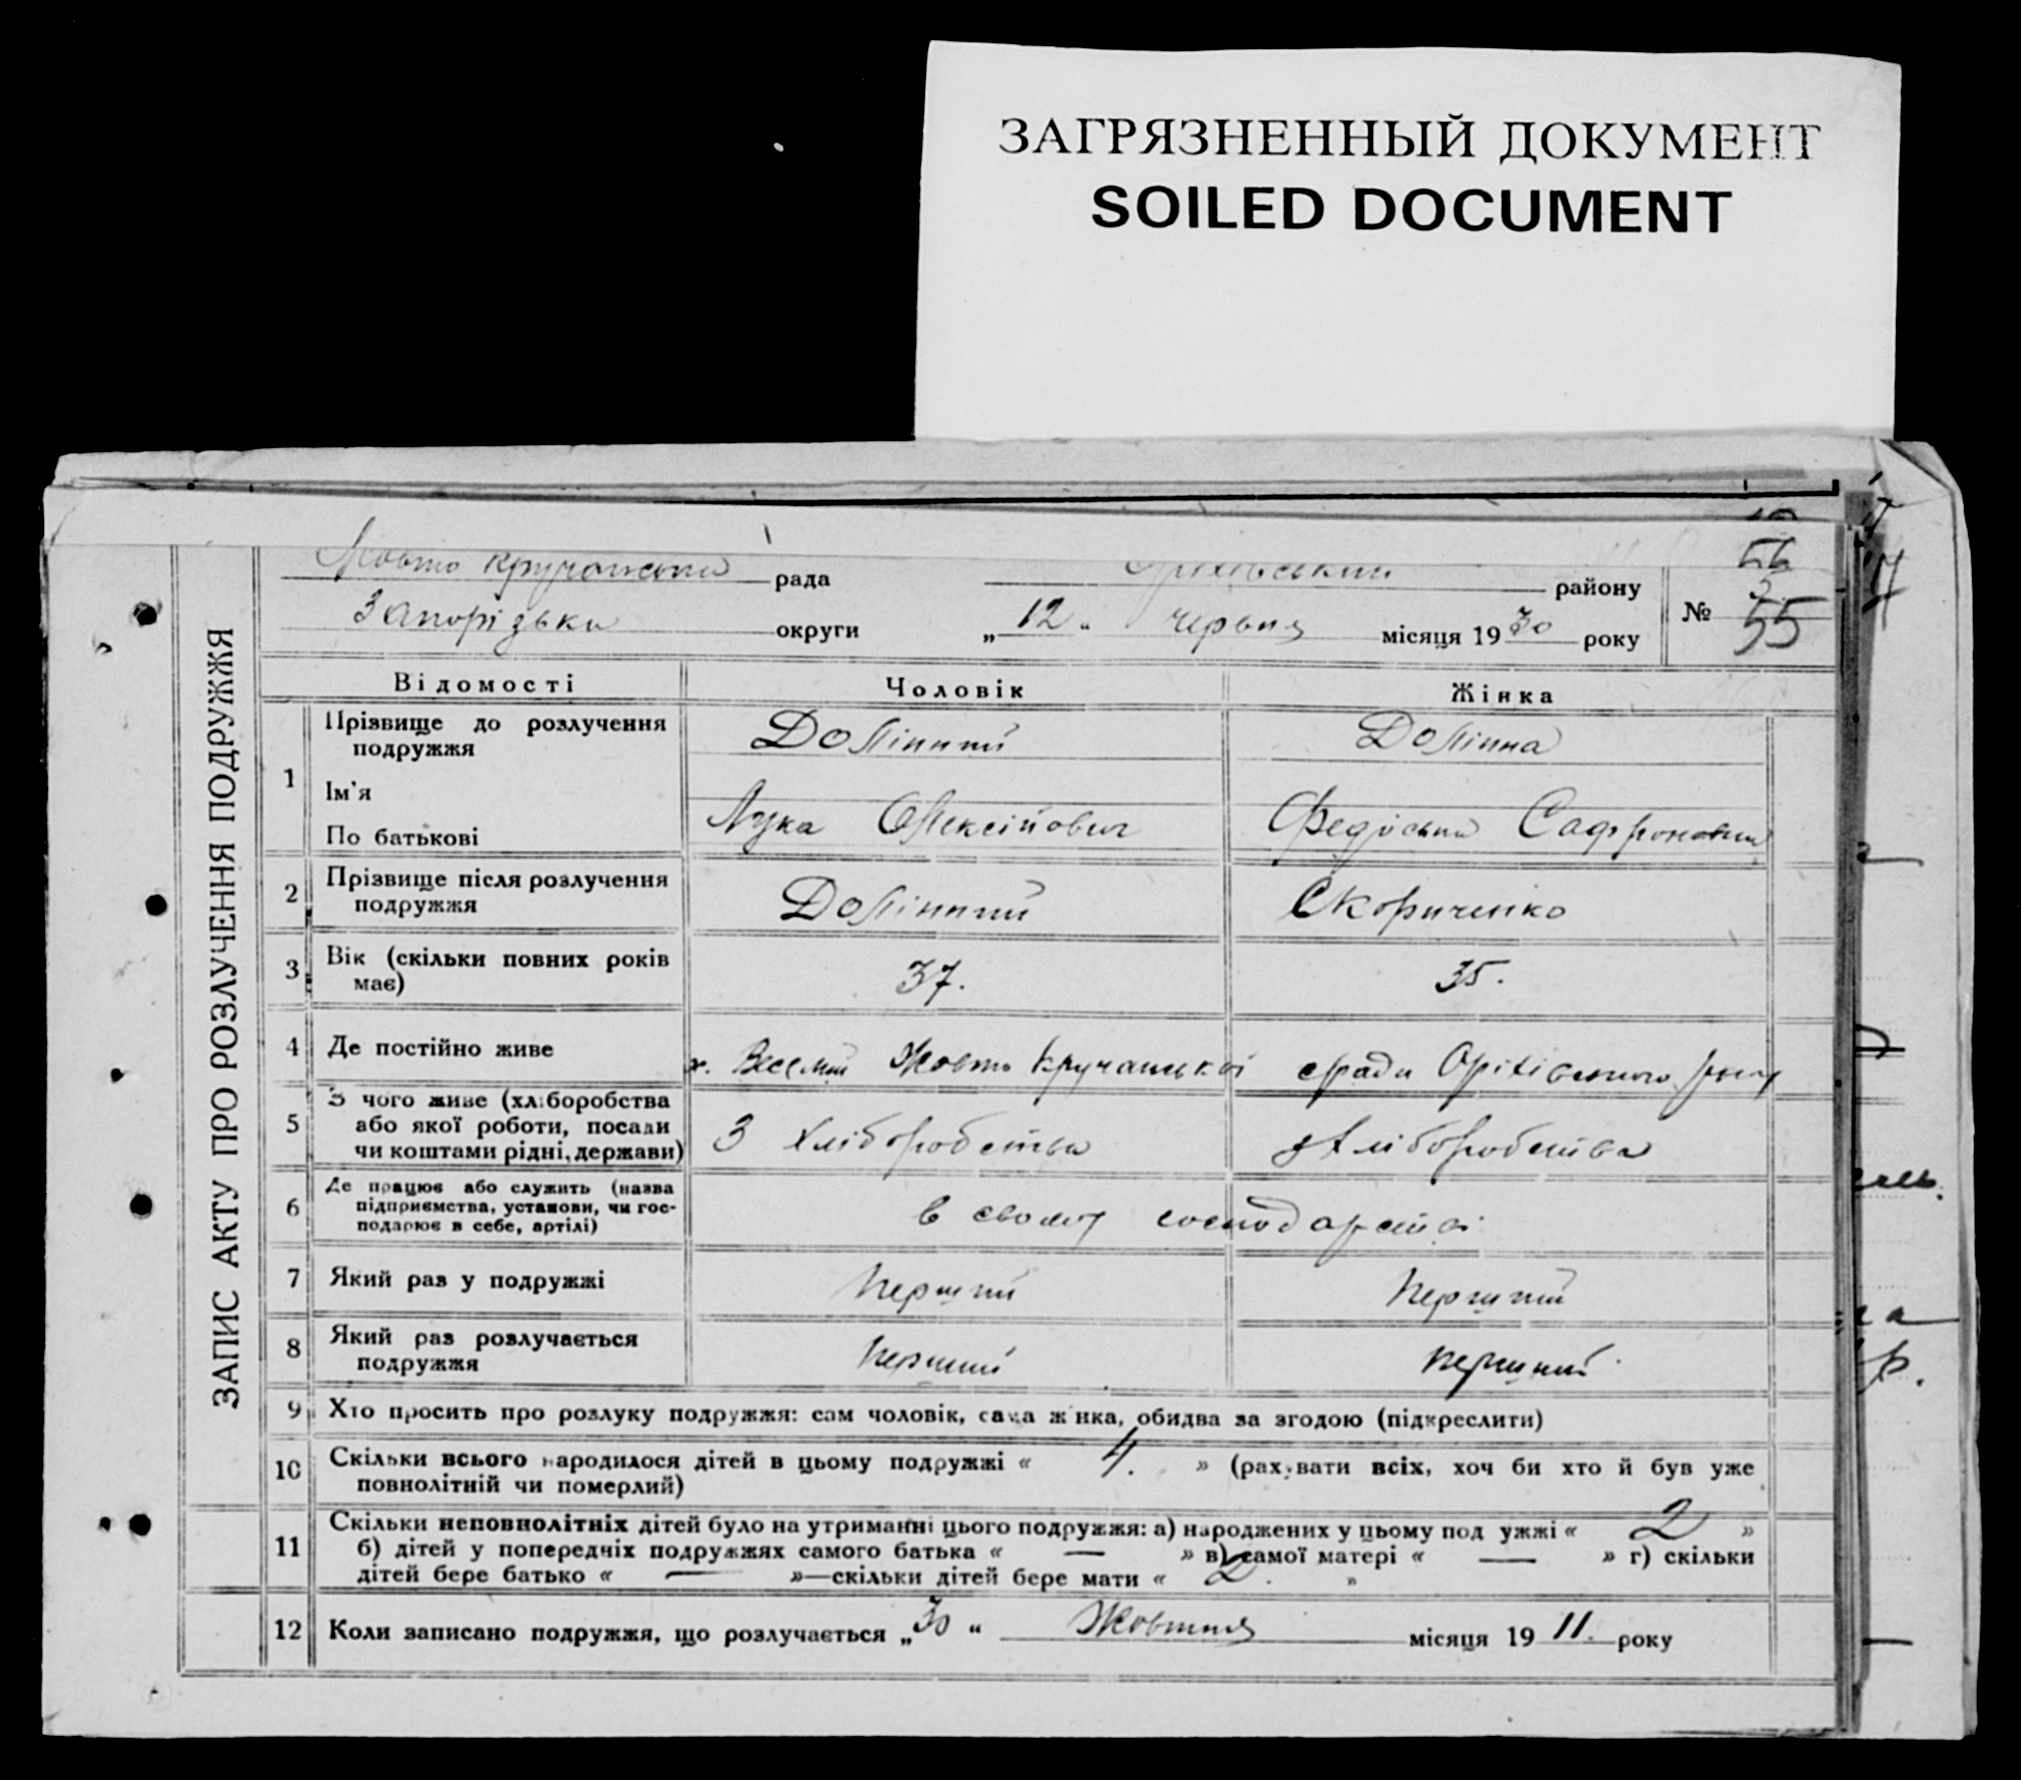 ЗАГРЯЗНЕННЫЙ ДОКУМЕНТ
SOILED DOCUMENT
ЗАПИС АКТУ ПРО РОЗЛУЧЕННЯ ПОДРУЖЖЯ
Жовто Кручанська рада Оріхівський району
Запорізька округи „12" червня місяця 1930 року № 55
Відомості Чоловік Жінка
1 Прізвище до розлучення подружжя Долінний Долінна
Ім'я
По батькові Лука Олексійович Федоська Сафроновна
2 Прізвище після розлучення подружжя Долінний Скориченко
3 Вік (скільки повних років має) 37. 35.
4 Де постійно живе х. Веселий Жовто Кручанської сради Оріхівського
5 З чого живе (хліборобства або якої роботи, посади чи коштами рідні, держави) З хліборобства з хліборобства
6 Де працює або служить (назва підприємства, установи, чи господарює в себе, артілі) в свому господарстві
7 Який раз у подружжі перший перший
8 Який раз розлучається подружжя перший перший
9 Хто просить про розлуку подружжя: сам чоловік, сама жінка, обидва за згодою (підкреслити)
10 Скільки всього народилося дітей в цьому подружжі « 4. » (рахувати всіх, хоч би хто й був уже
повнолітній чи померлий)
11 Скільки неповнолітніх дітей було на утриманні цього подружжя: а) народжених у цьому подружжі « 2 »
б) дітей у попередніх подружжях самого батька « — » в) самої матері « — » г) скільки
дітей бере батько « — »—скільки дітей бере мати « 2. »
12 Коли записано подружжя, що розлучається „30" Жовтня місяця 1911. року